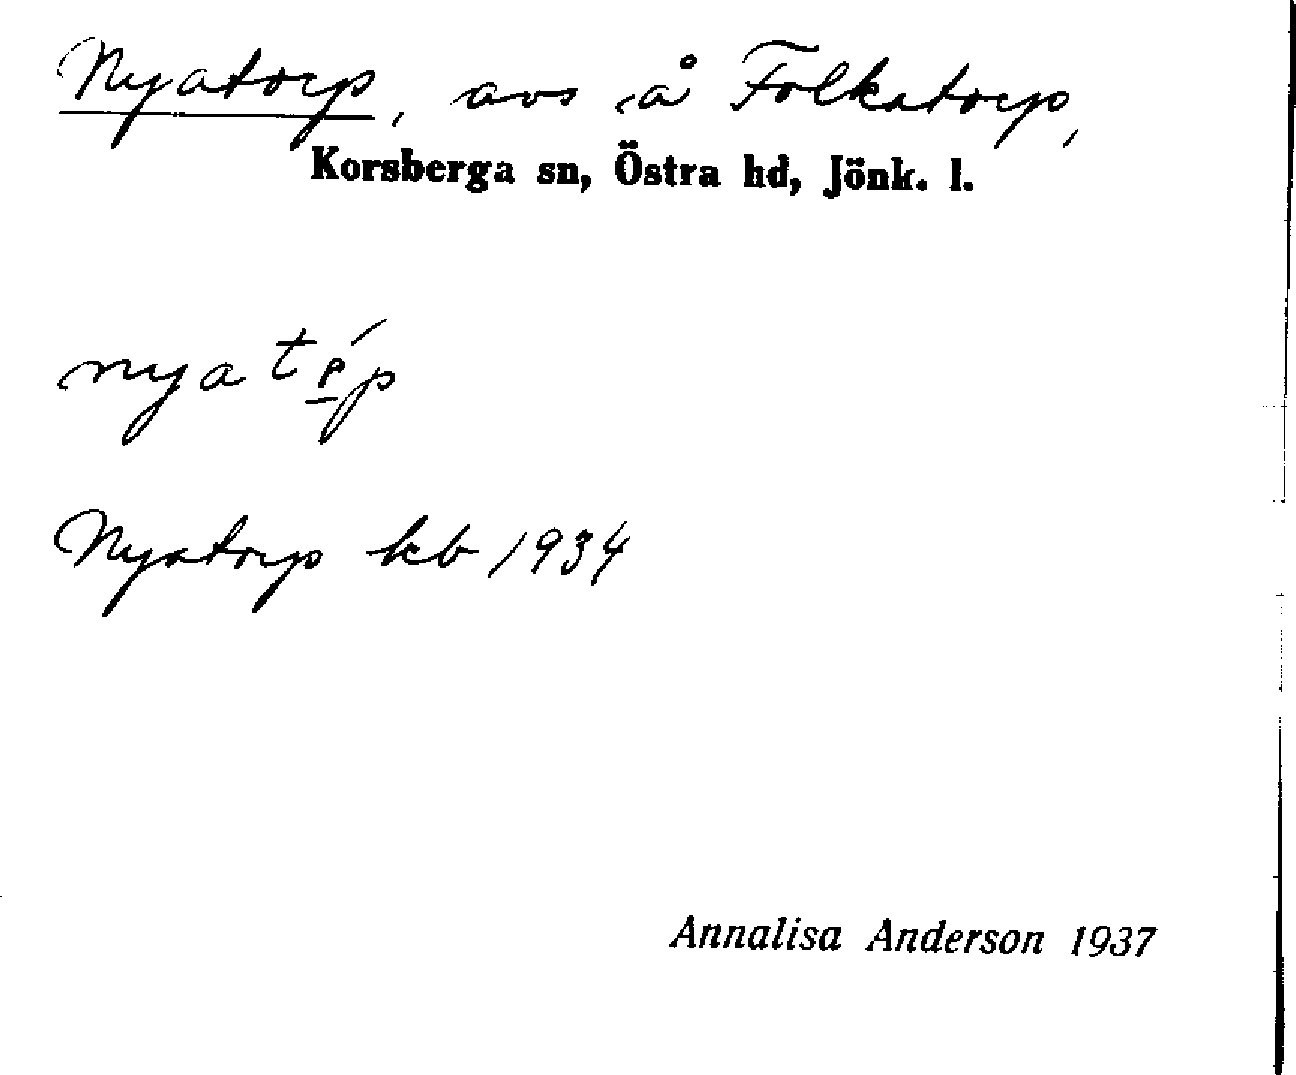 Nyatorp, avs å Folkatorp,
Korsberga sn, Östra hd, Jönk. l.
nya
Nyatorp kb 1934
Annalisa Anderson 1937